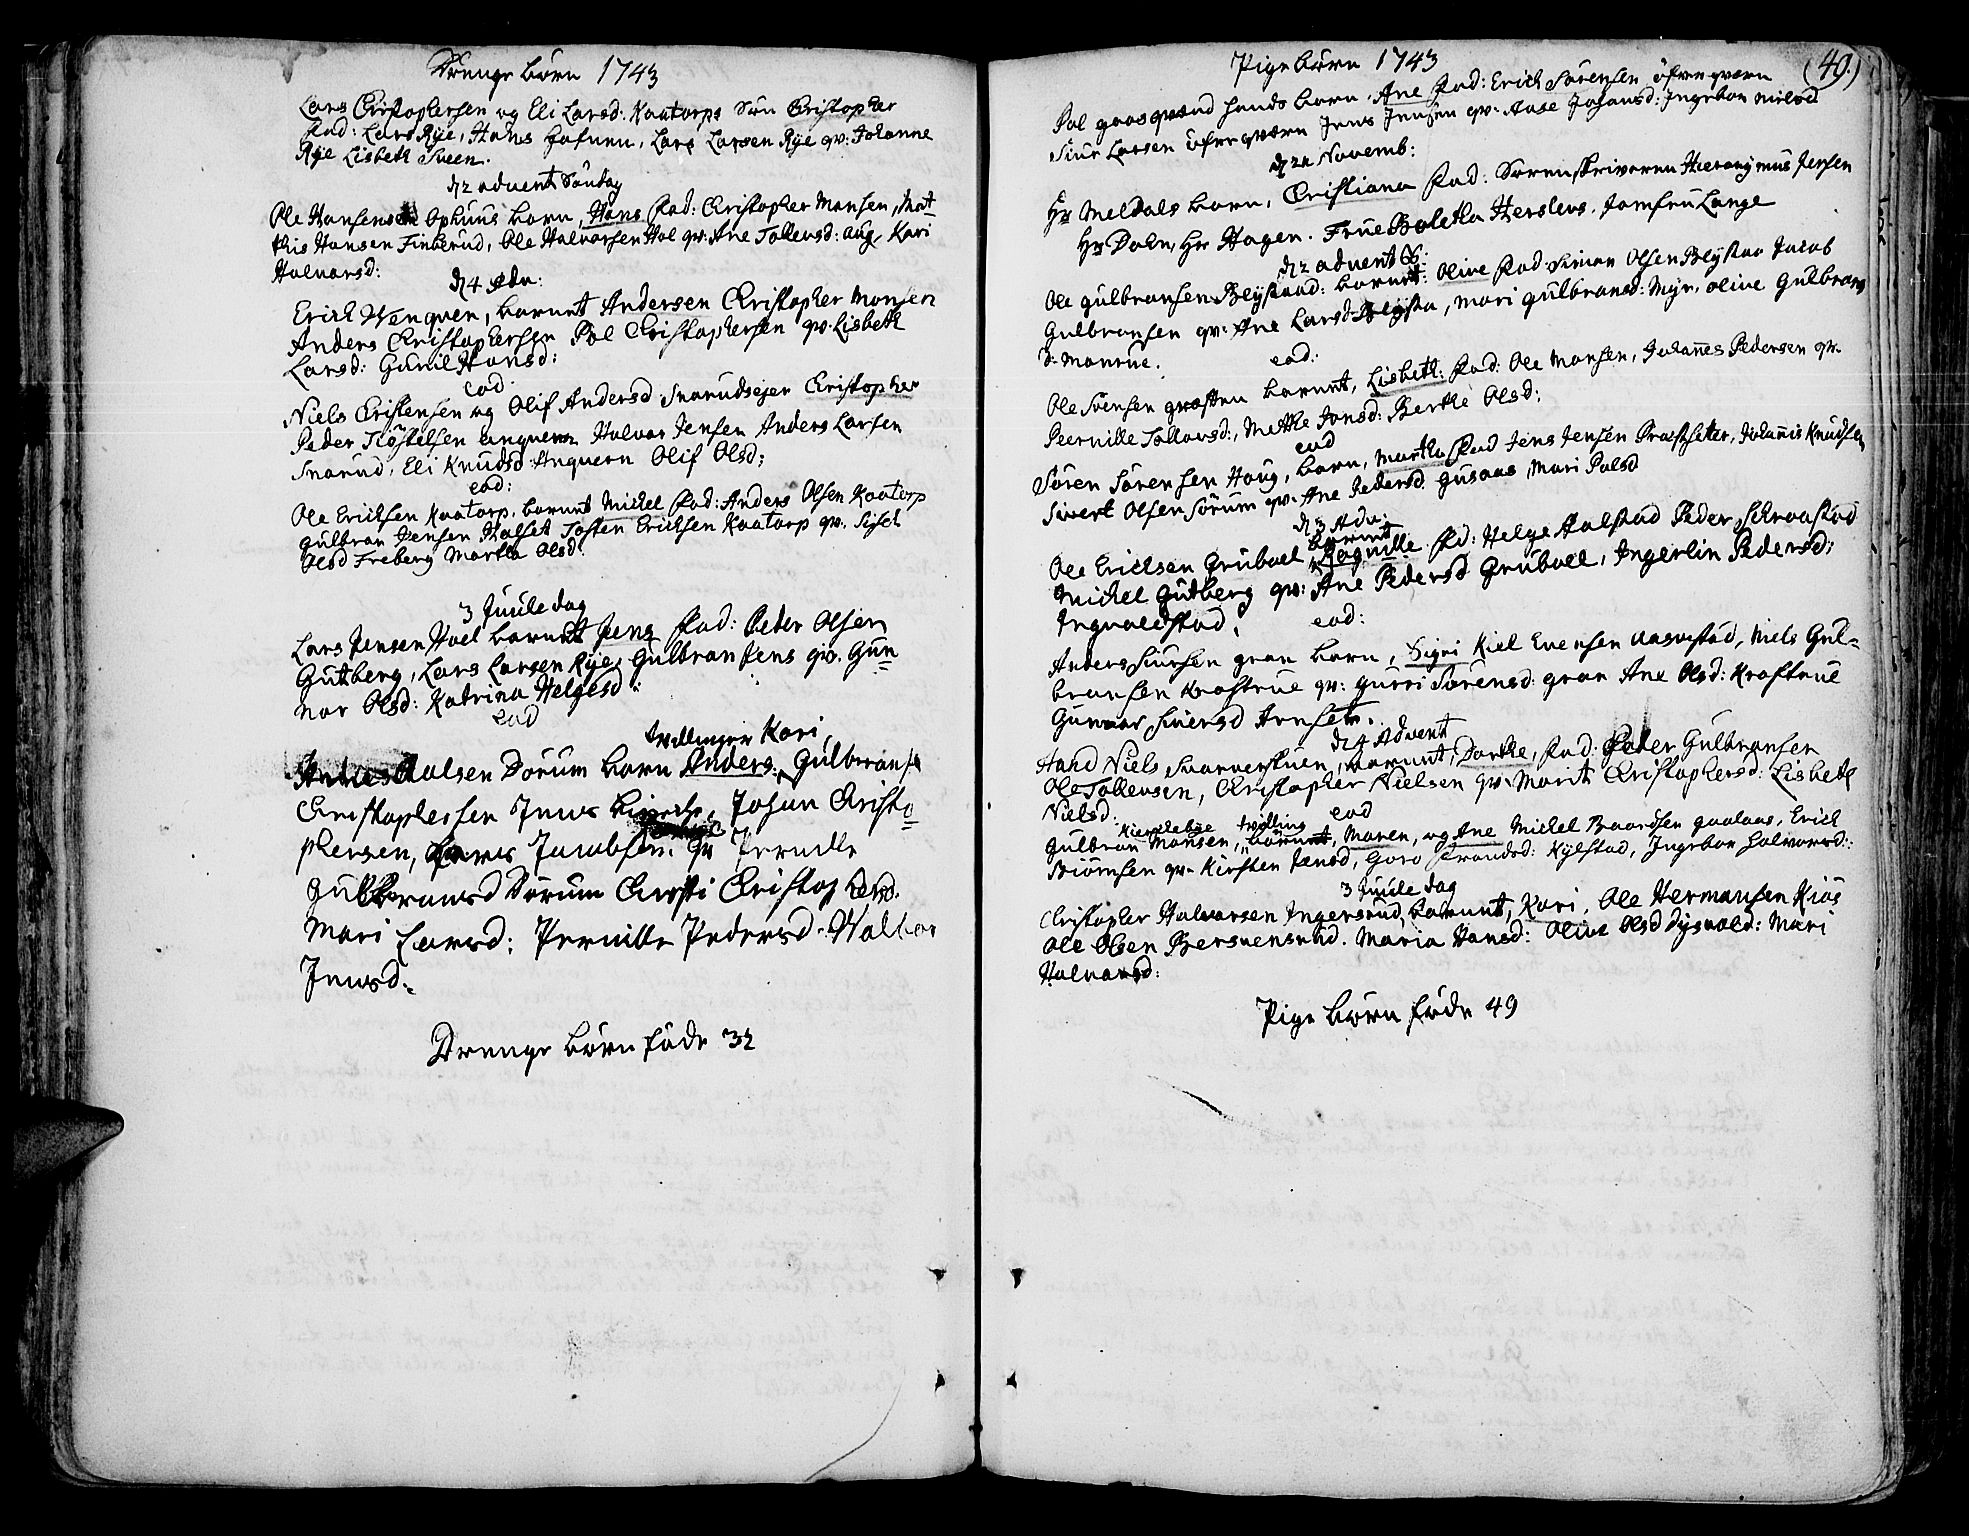 Drenge børn 1743
Lars Christophersen og Eli Larsd: Kaatorps Søn Christopher
Fad: Lars Rye, Hans Lars Larsen Rye qv: Johanne
Rye Lisbeth Sveen.
d 2 advent Søndag
Ole Hansens Ophuus barn, Hans Fad: Christopher Monsen, Mat-
this Hansen Finberud, Ole Halvorsen Hol qv: Ane Tollevsd: aug, Kari
Halvorsd:
d 4 Adv:
Erich Wenqvern, barnet Andersen Christopher Monsen
Anders Christophersen Pol Christophersen qv. Lisbeth
Larsd: Gunil Hansd:
eod.
Niels Christensen og Olif Andersd Snarudsejer Christopher
Peder Kiøstelsen anqvern Halvor Jensen Anders Larsen
Snarud, Eli Knudsd Anqvern Olif Olsd:
eod:
Ole Erichsen Kaatorp, barnet Michel Fad: Anders Olsen Kaatorp
Gulbran Jensen Halset Tosten Erichsen Kaatorp qv. Sisel
Olsd Freberg Martha Olsd.
3 Juule dag
Lars Jensen Hoel barnet Jens Fad: Peder Olsen
Gutberg, Lars Larsen Rye, Gulbran Jens qv. Gun
nor Olsd: Katrina Helgesd:
eod
tvillinger Kari,
Anders Pålsen Dørum born Anders, Gulbrans
Christophersen Jens Johan Christo
phersen, Jacobsen. qv Pernille
Gulbransd Dørum Christi Christophersd.
Mari Larsd: Pernille Pedersd. Walbor
Jensd.
Drenge børn føde 32
Pige børn 1743
(49)
Pol gaasqvænd hands barn, Ane Fad: Erich Sørensen øfreqværn
Siur Larsen øfreqværn Jens Jensen qv. Aase Johansd: Ingebor Nielsd
d 24 Novemb:
Hr Meldals barn, Christiana Fad: Sorenskriveren Hieronymus Jensen
Hr Dahn, Hr Hagen. Frue Boletha Herslevs. Jomfru Lange
d 2 advent S:
Ole Gulbransen Blystad: barnet: Olive Fad: Simon Olsen Blystad Jacob
Gulbransen qv: Ane Larsd Blysta, Mari Gulbransd: Myr, Olive Gulbrans
d. Monrue.
eod.:
Ole Svensen græsten barnet, Lisbeth: Fad: Ole Monsen, Johannes Pedersen qv.
Peernille Tollovsd:, Mette Jonsd: Berthe Olsd:
eod
Søren Sørensen Houg, barn, Martha Fad Jens Jensen Præstsæter, Johannis Knudsen
Sivert Olsen Sørum qv. Ane Pedersd. Gusaas, Mari Palsd
d 3 Adv:
barnet
Ole Erichsen Grubuel, Ragnille Fad: Helge Aalstad Peder Schraastad
Michel Gutberg qv: Ane Pedersd Grubuel, Ingerlin Pedersd:
Ingvaldstad:
eod:
Anders Siursen gran barn, Sigri Kiel Evensen Aasvestad, Niels Gul-
bransen Kraftrue qv: Gurri Sørensd: gran Ane Olsd: Kraftrue
Gunnor Siversd Arnset.
d 4 Advent
Hand Niels Skarverstuen, barnet, Dorthe, Fad: Peder Gulbransen
Ole Tollevsen, Christopher Nielsen qv: Marit Christophersd: Lisbeth
Nielsd.
eod
Kierchebye tvilling
Gulbran Monsen, barnet, Maren, og Ane Michel Baardsen gaalaas, Erich
Biørnsen qv. Kirsten Jensd, Goro Strandsd: Kylstad, Ingebor Halvorsd:
3 Juule dag
Christopher Halvorsen Ingersrud, barnet, Kari, Ole Hermansen Kiøs
Ole Olsen Bersvensrud. Maria Hansd: Olive Olsd Dysvold: Mari
Halvorsd:
Pige børn føde 49